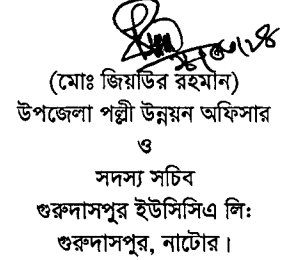 (মোঃ জিয়াউর রহমান)
উপজেলা পল্লী উন্নয়ন অফিসার
ও
সদস্য সচিব
গুরুদাসপুর ইউসিসিএ লি:
গুরুদাসপুর, নাটোর।